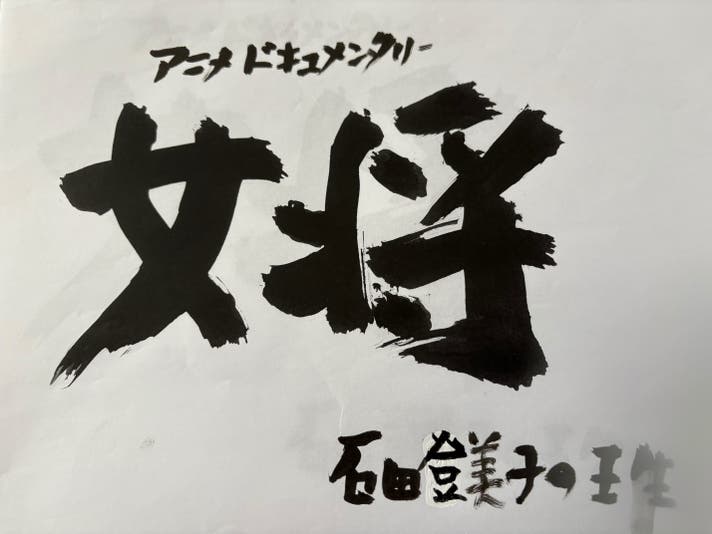 アニメドキュメンタリー
女将
石田登美子の